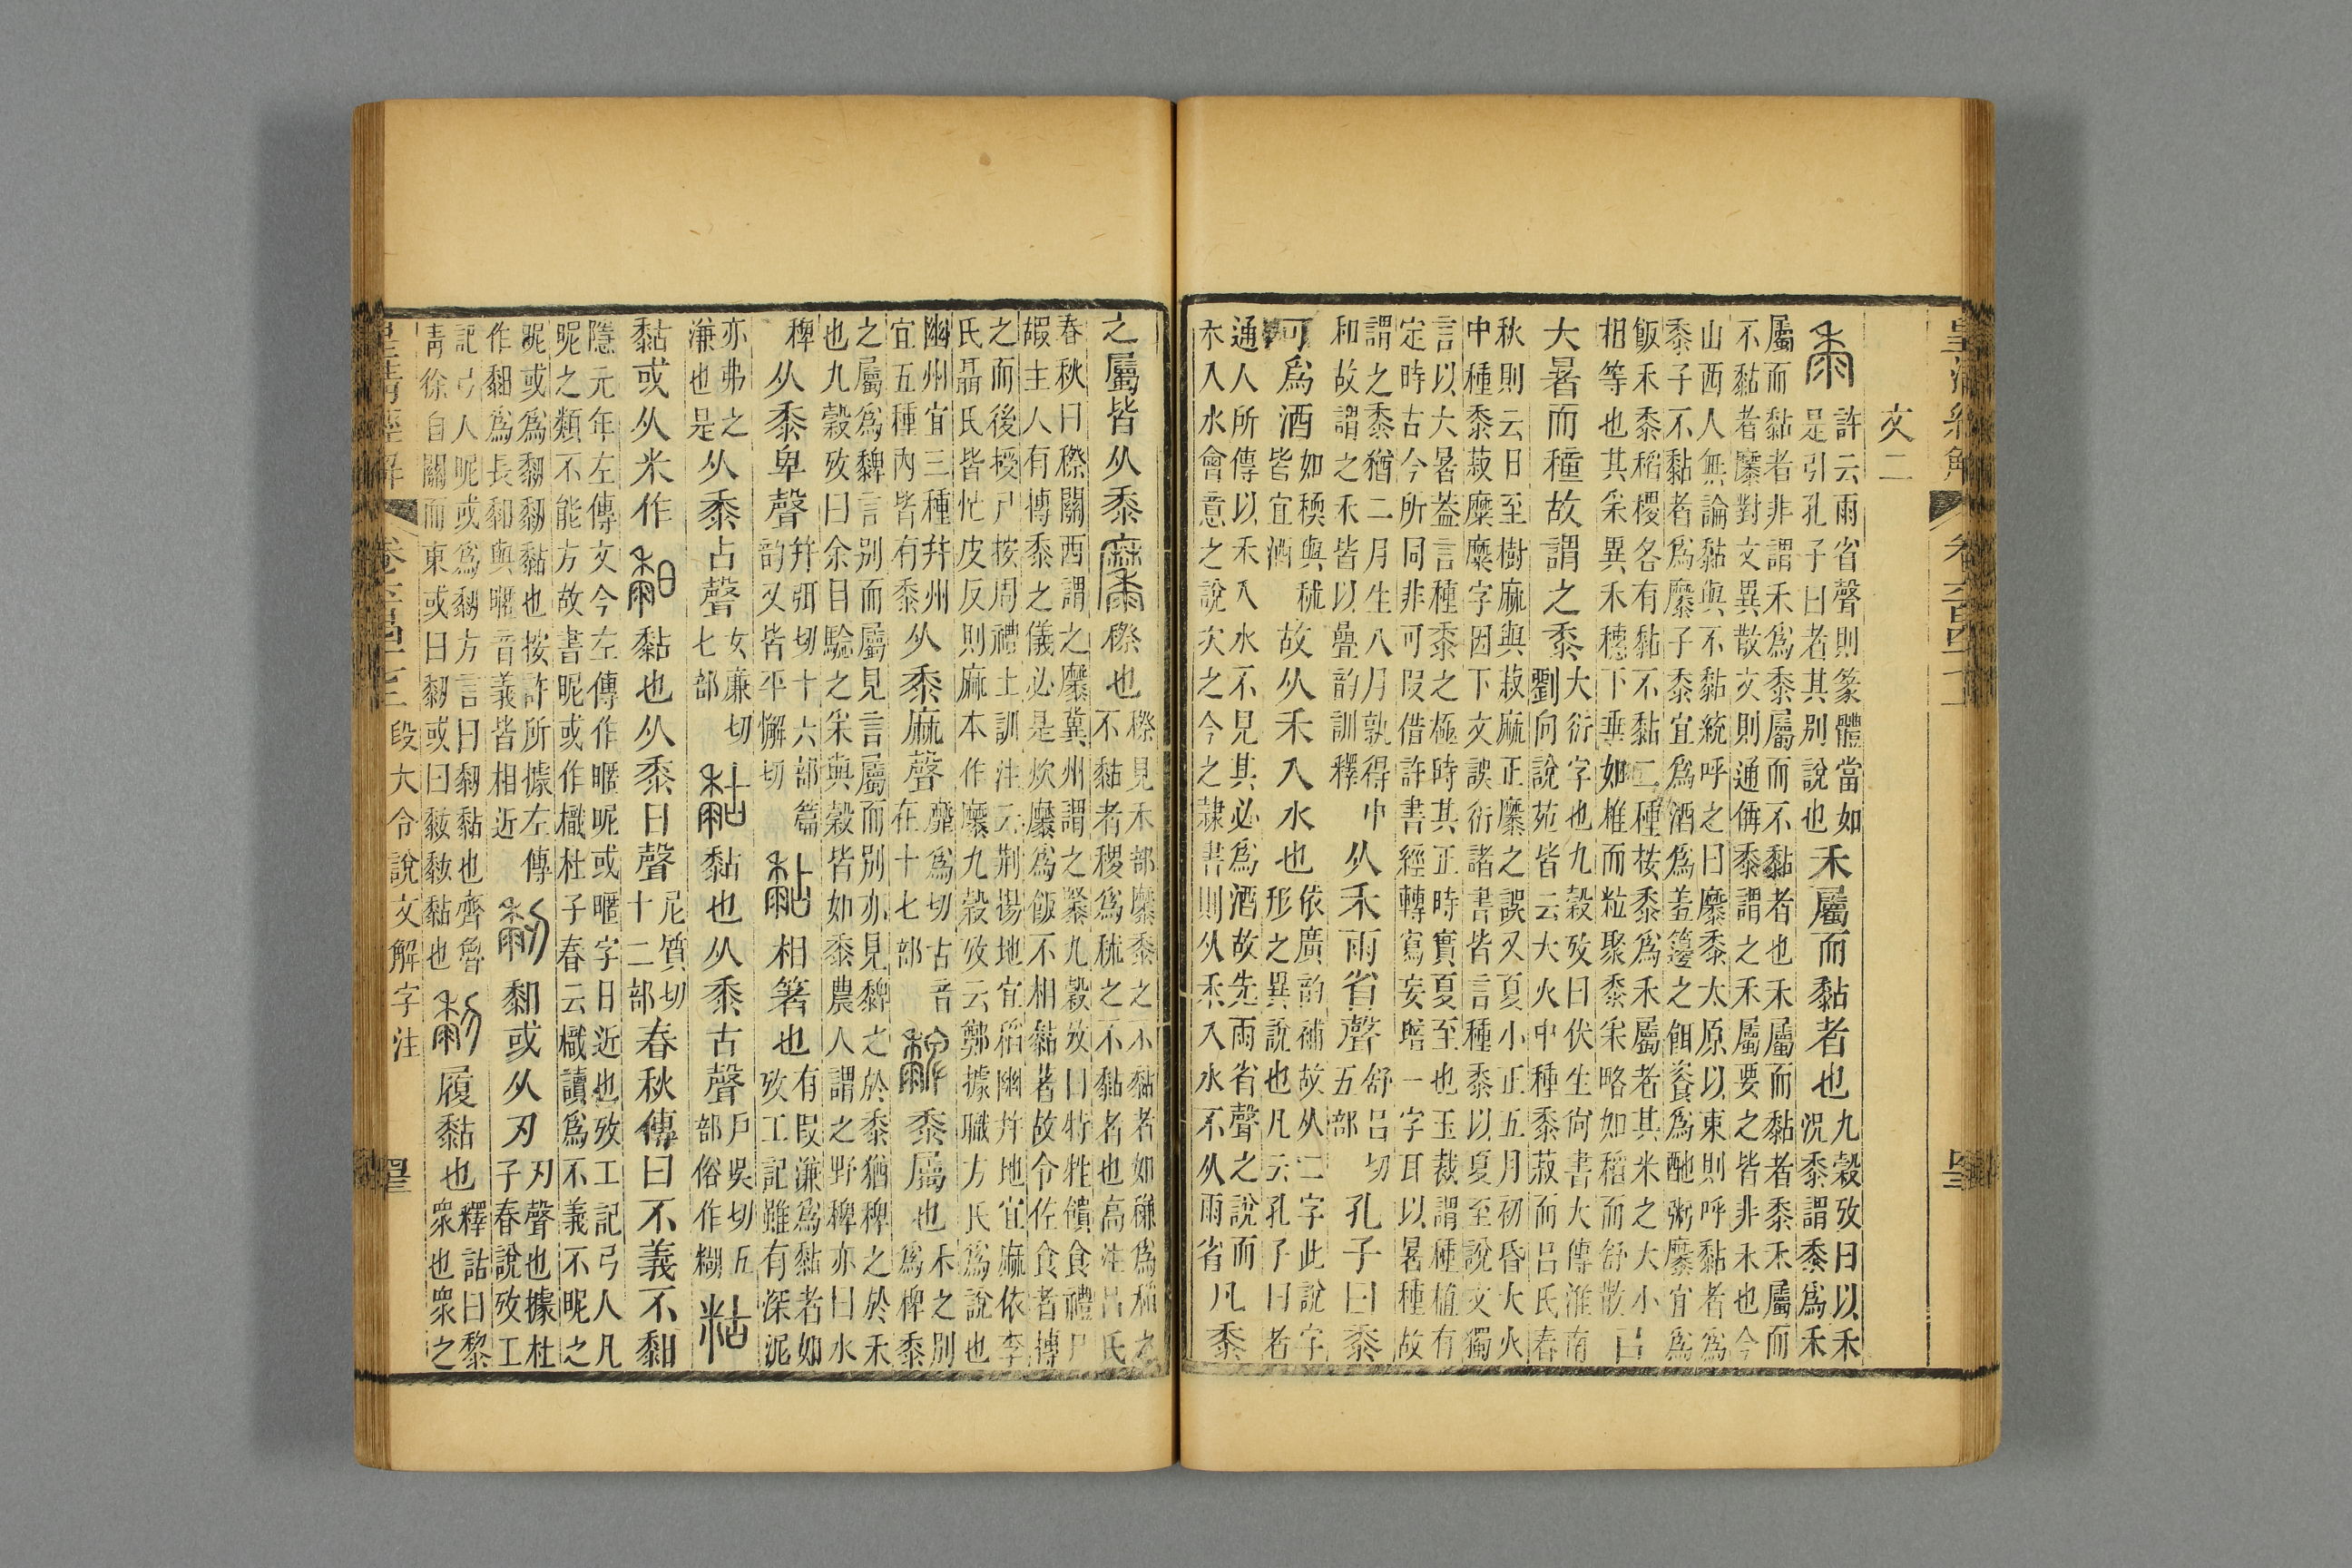 文二
黍
許云雨省聲則篆體當如
是引孔子曰者其別說也
禾屬而黏者也
九穀攷曰以禾
況黍謂黍爲禾
屬而黏者非謂禾爲黍屬而不黏者也禾屬而黏者黍禾屬而
不黏者穈對文異散文則通偁黍謂之禾屬要之皆非禾也今
山西人無論黏與不黏統呼之曰穈黍太原以東則呼黏者爲
黍子不黏者爲穈子黍宜爲酒爲羞籩之餌餈爲酏粥穈宜爲
飯禾黍稻稷各有黏不黏二種按黍爲禾屬者其米之大小
相等也其采異禾穗下垂如椎而粒聚黍采略如稻而舒散
㠯
大暑而穜故謂之黍
大衍字也九穀攷曰伏生尙書大傳淮南
劉向說苑皆云大火中種黍菽而呂氏春
秋則云日至樹麻與菽麻正穈之誤又夏小正五月初昏大火
中種黍菽糜糜字因下文誤衍諸書皆言種黍以夏至說文獨
言以大暑葢言種黍之極時其正時實夏至也玉裁謂種植有
定時古今所同非可叚借許書經轉寫妄增一字耳以暑種故
謂之黍猶二月生八月孰得中
和故謂之禾皆以疊韵訓釋
从禾雨省聲
舒呂切
五部
孔子曰黍
可爲酒
如稬與秫
皆宜酒
故从禾入水也
依廣韵補故从二字此說字
形之異說也凡云孔子曰者
通人所傳以禾入水不見其必爲酒故先雨省聲之說而
禾入水會意之說次之今之隸書則从禾入水不从雨省
凡黍
之屬皆从黍
穄也
穄見禾部穈黍之不黏者如稴爲稻之
不黏者稷爲秫之不黏者也高注呂氏
春秋曰穄關西謂之穈冀州謂之緊九穀攷曰特牲饋食禮尸
嘏主人有摶黍之儀必是炊穈爲飯不相黏著故令佐食者摶
之而後授尸按周禮土訓注云荆揚地宜稻幽幷地宜麻依李
氏聶氏皆忙皮反則麻本作穈九穀攷云鄭據職方氏爲說也
幽州宜三種幷州
宜五種內皆有黍
从黍麻聲
靡爲切古音
在十七部
黍屬也
禾之別
爲稗黍
之屬爲䵗言別而屬見言屬而別亦見䵗之於黍猶稗之於禾
也九穀攷曰余目驗之采與穀皆如黍農人謂之野稗亦曰水
稗
从黍卑聲
幷弭切十六部篇
韵又皆平懈切
黏
相箸也
有叚溓爲黏者如
攷工記雖有深泥
亦弗之
溓也是
从黍占聲
女廉切
七部
黏也从黍古聲
戶吳切五
部俗作糊
粘
黏或从米作
䵑
黏也从黍日聲
尼質切
十二部
春秋傳曰不義不䵑
隱元年左傳文今左傳作暱昵或暱字日近也攷工記弓人凡
昵之類不能方故書昵或作樴杜子春云樴讀爲不義不昵之
昵或爲䵒䵒黏也按許所據左傳
作䵑爲長䵑與暱音義皆相近
䵒
䵑或从刃
刃聲也據杜
子春說攷工
記弓人昵或爲䵒方言曰䵒黏也齊魯
靑徐自關而東或曰䵒或曰黏也
履黏也
釋詁曰黎
衆也衆之
段大令說文解字注